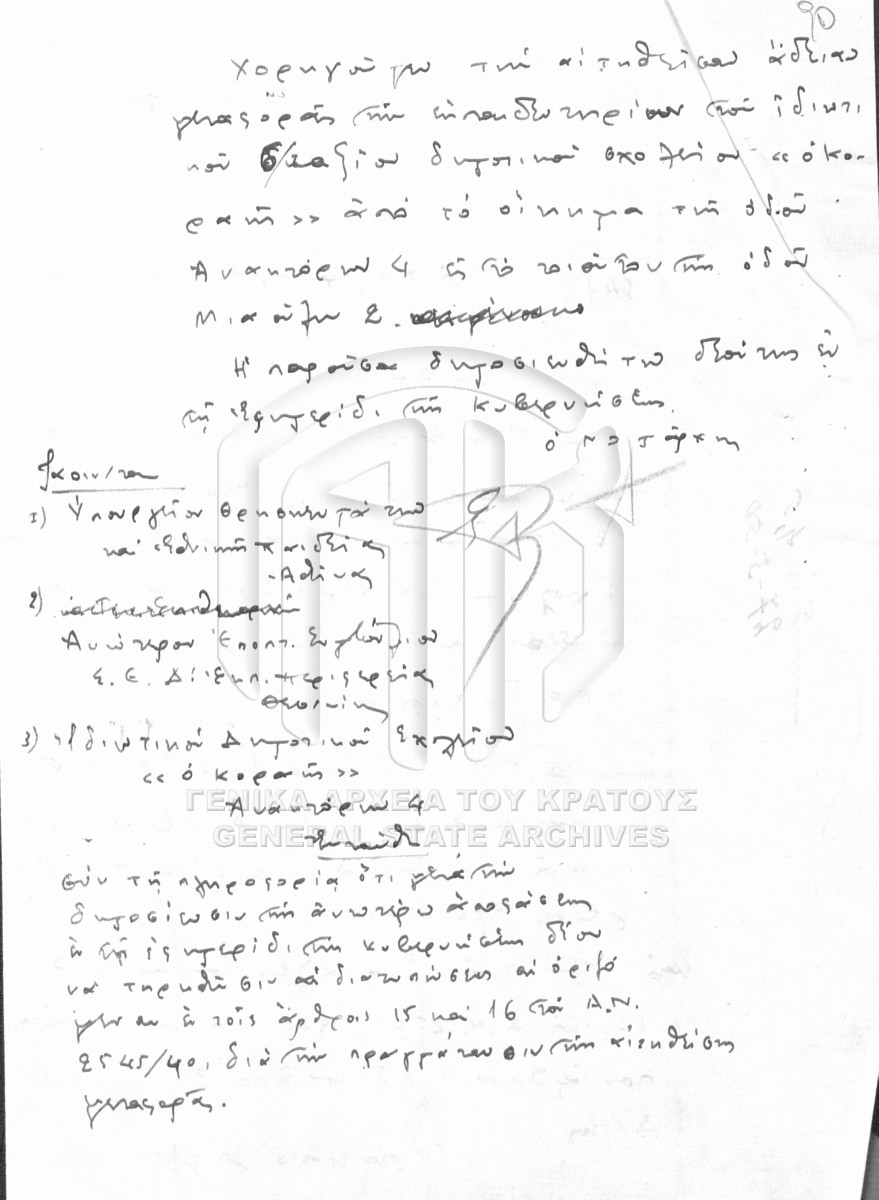 90
Χορηγοῦμεν τὴν αἰτηθεῖσαν ἄδειαν
μεταφορᾶς τῶν ἐκπαιδευτηρίων τοῦ ἰδιωτι
κοῦ 6/ταξίου δημοτικοῦ σχολείου «ὁ Κο-
ραῆς» ἀπὸ τὸ οἴκημα τῆς ὁδοῦ
Ἀνακτόρων 4 εἰς τὸ τοιοῦτον τῆς ὁδοῦ
Μιαούλη 2.
Ἡ παροῦσα δημοσιευθήτω δεόντως ἐν
τῇ ἐφημερίδι τῆς κυβερνήσεως.
ὁ Νομάρχης
Κοιν/ται
1) Ὑπουργεῖον Θρησκευμάτων
καὶ Ἐθνικῆς Παιδείας
Ἀθήνας
2)
Ἀνώτερον Ἐποπτ. Συμβούλιον
Σ. Ε. Διεκπ. Περιφερείας
Θεσ/νίκης
3) Ἰδιωτικὸν Δημοτικὸν Σχολεῖον
«ὁ Κοραῆς»
Ἀνακτόρων 4
Ἐνταῦθα
ΓΕΝΙΚΑ ΑΡΧΕΙΑ ΤΟΥ ΚΡΑΤΟΥΣ
GENERAL STATE ARCHIVES
σὺν τῇ πληροφορίᾳ ὅτι μετὰ τὴν
δημοσίευσιν τῆς ἀνωτέρω ἀποφάσεως
ἐν τῇ ἐφημερίδι τῆς κυβερνήσεως δέον
νὰ τηρηθῶσιν αἱ διατυπώσεις αἱ ὁριζό
μεναι ἐν τοῖς ἄρθροις 15 καὶ 16 τοῦ Α.Ν.
2545/40, διὰ τὴν πραγμάτωσιν τῆς αἰτηθείσης
μεταφορᾶς.